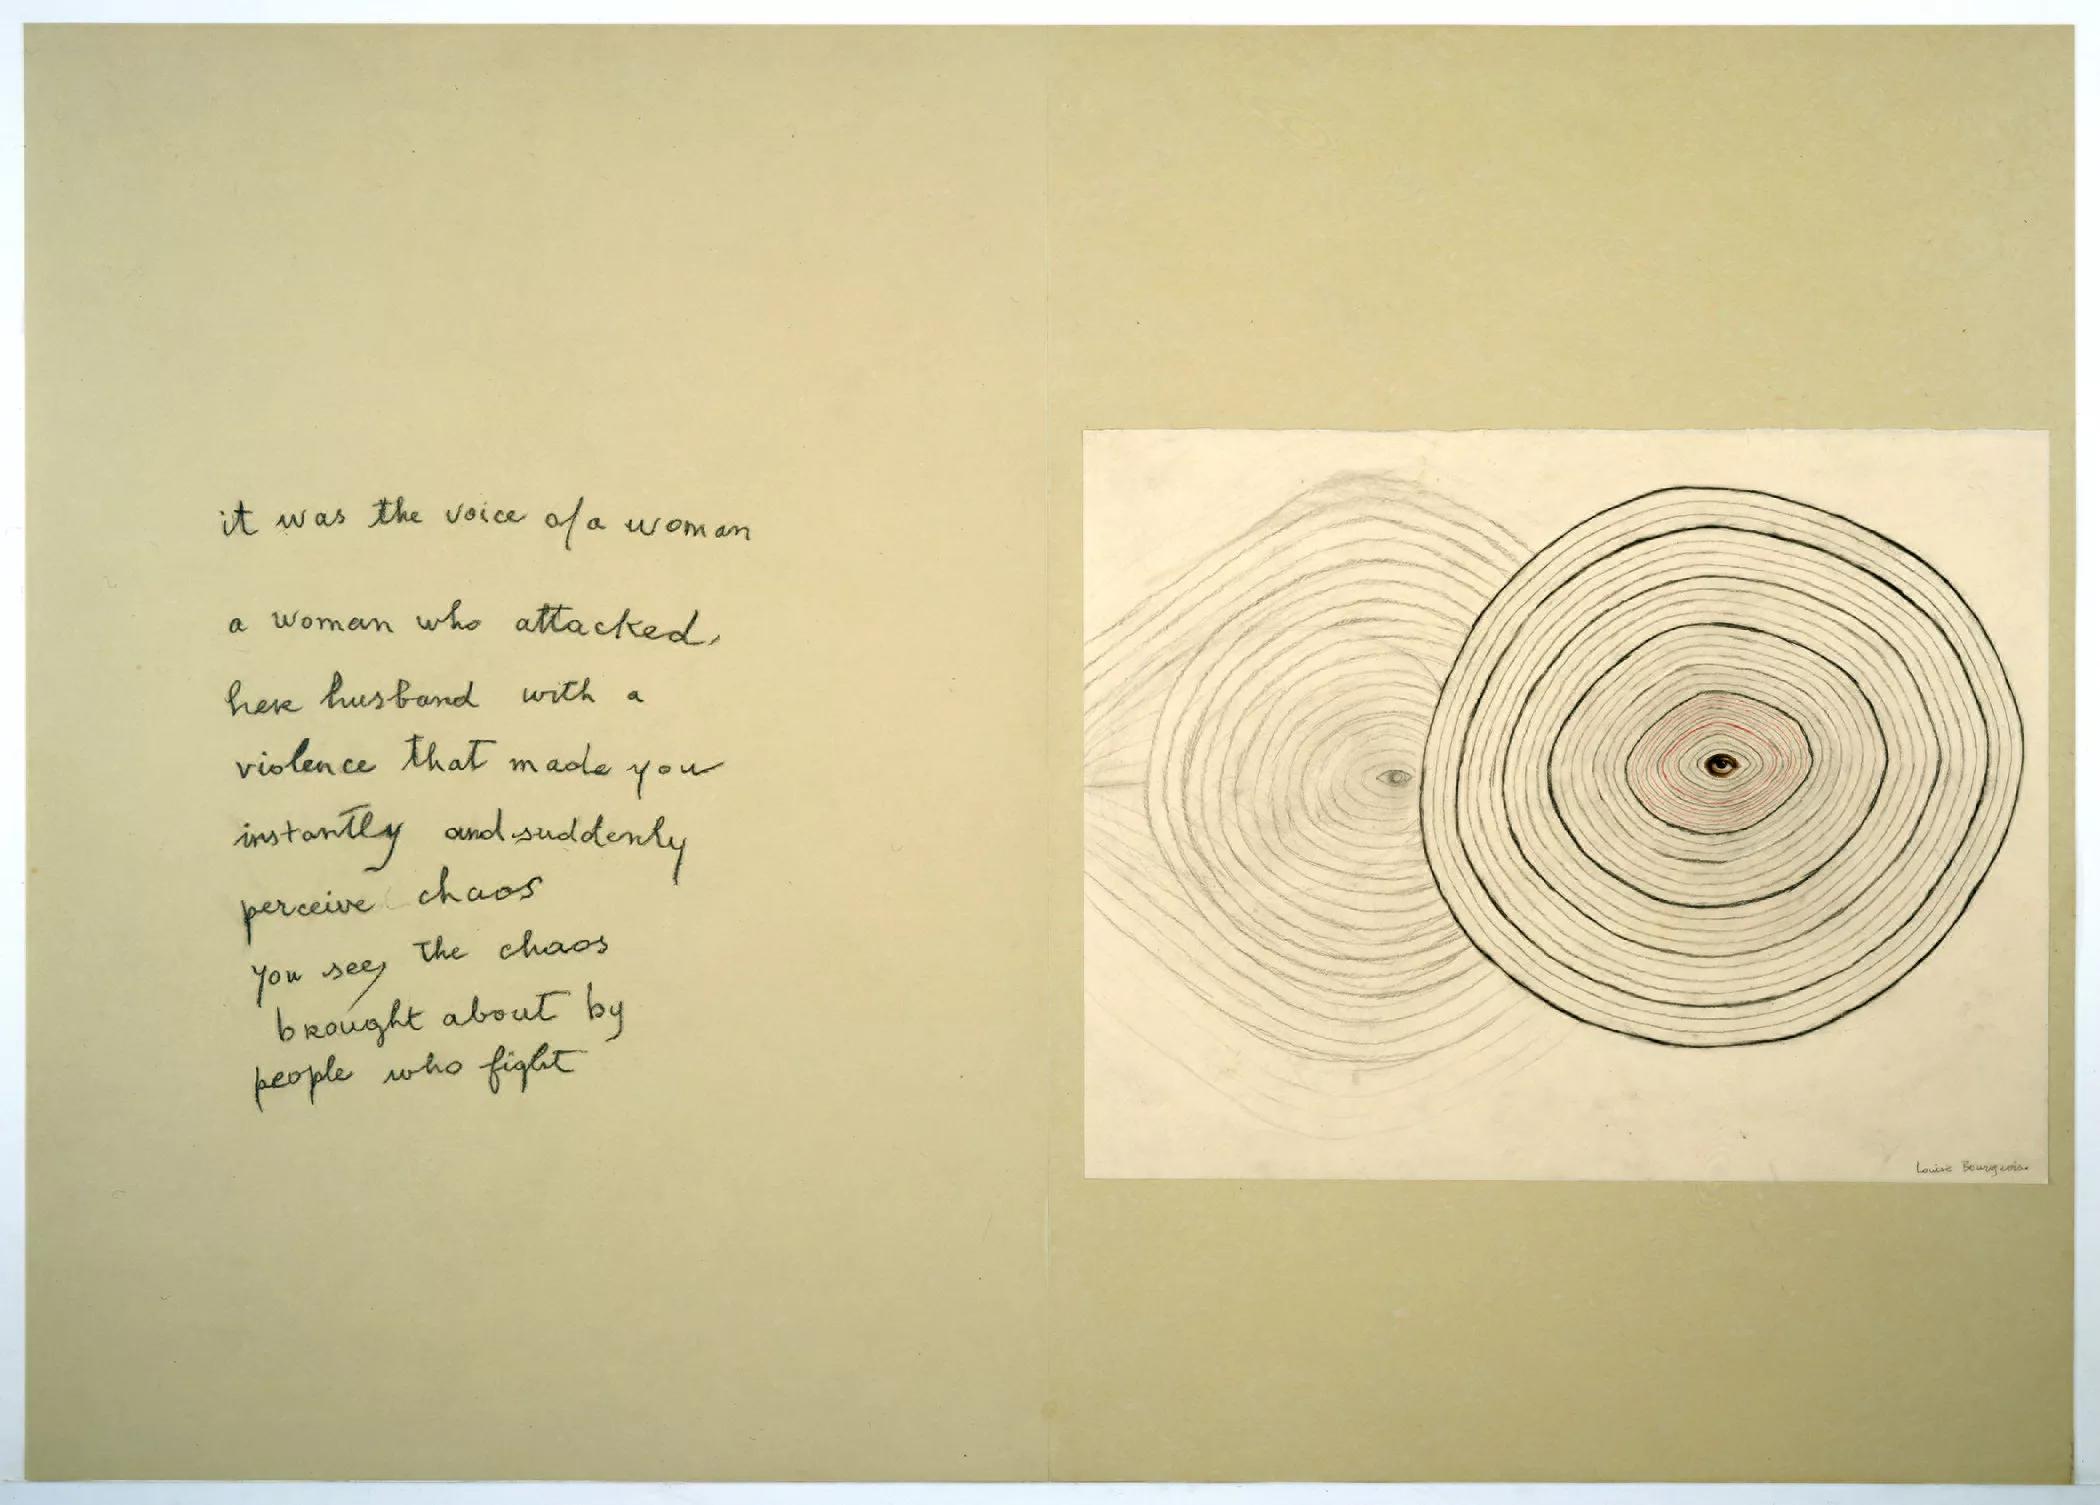 it was the voice of a woman
a woman who attacked,
her husband with a
violence that made you
instantly and suddenly
perceive chaos
you see, the chaos
brought about by
people who fight
Louise Bourgeois